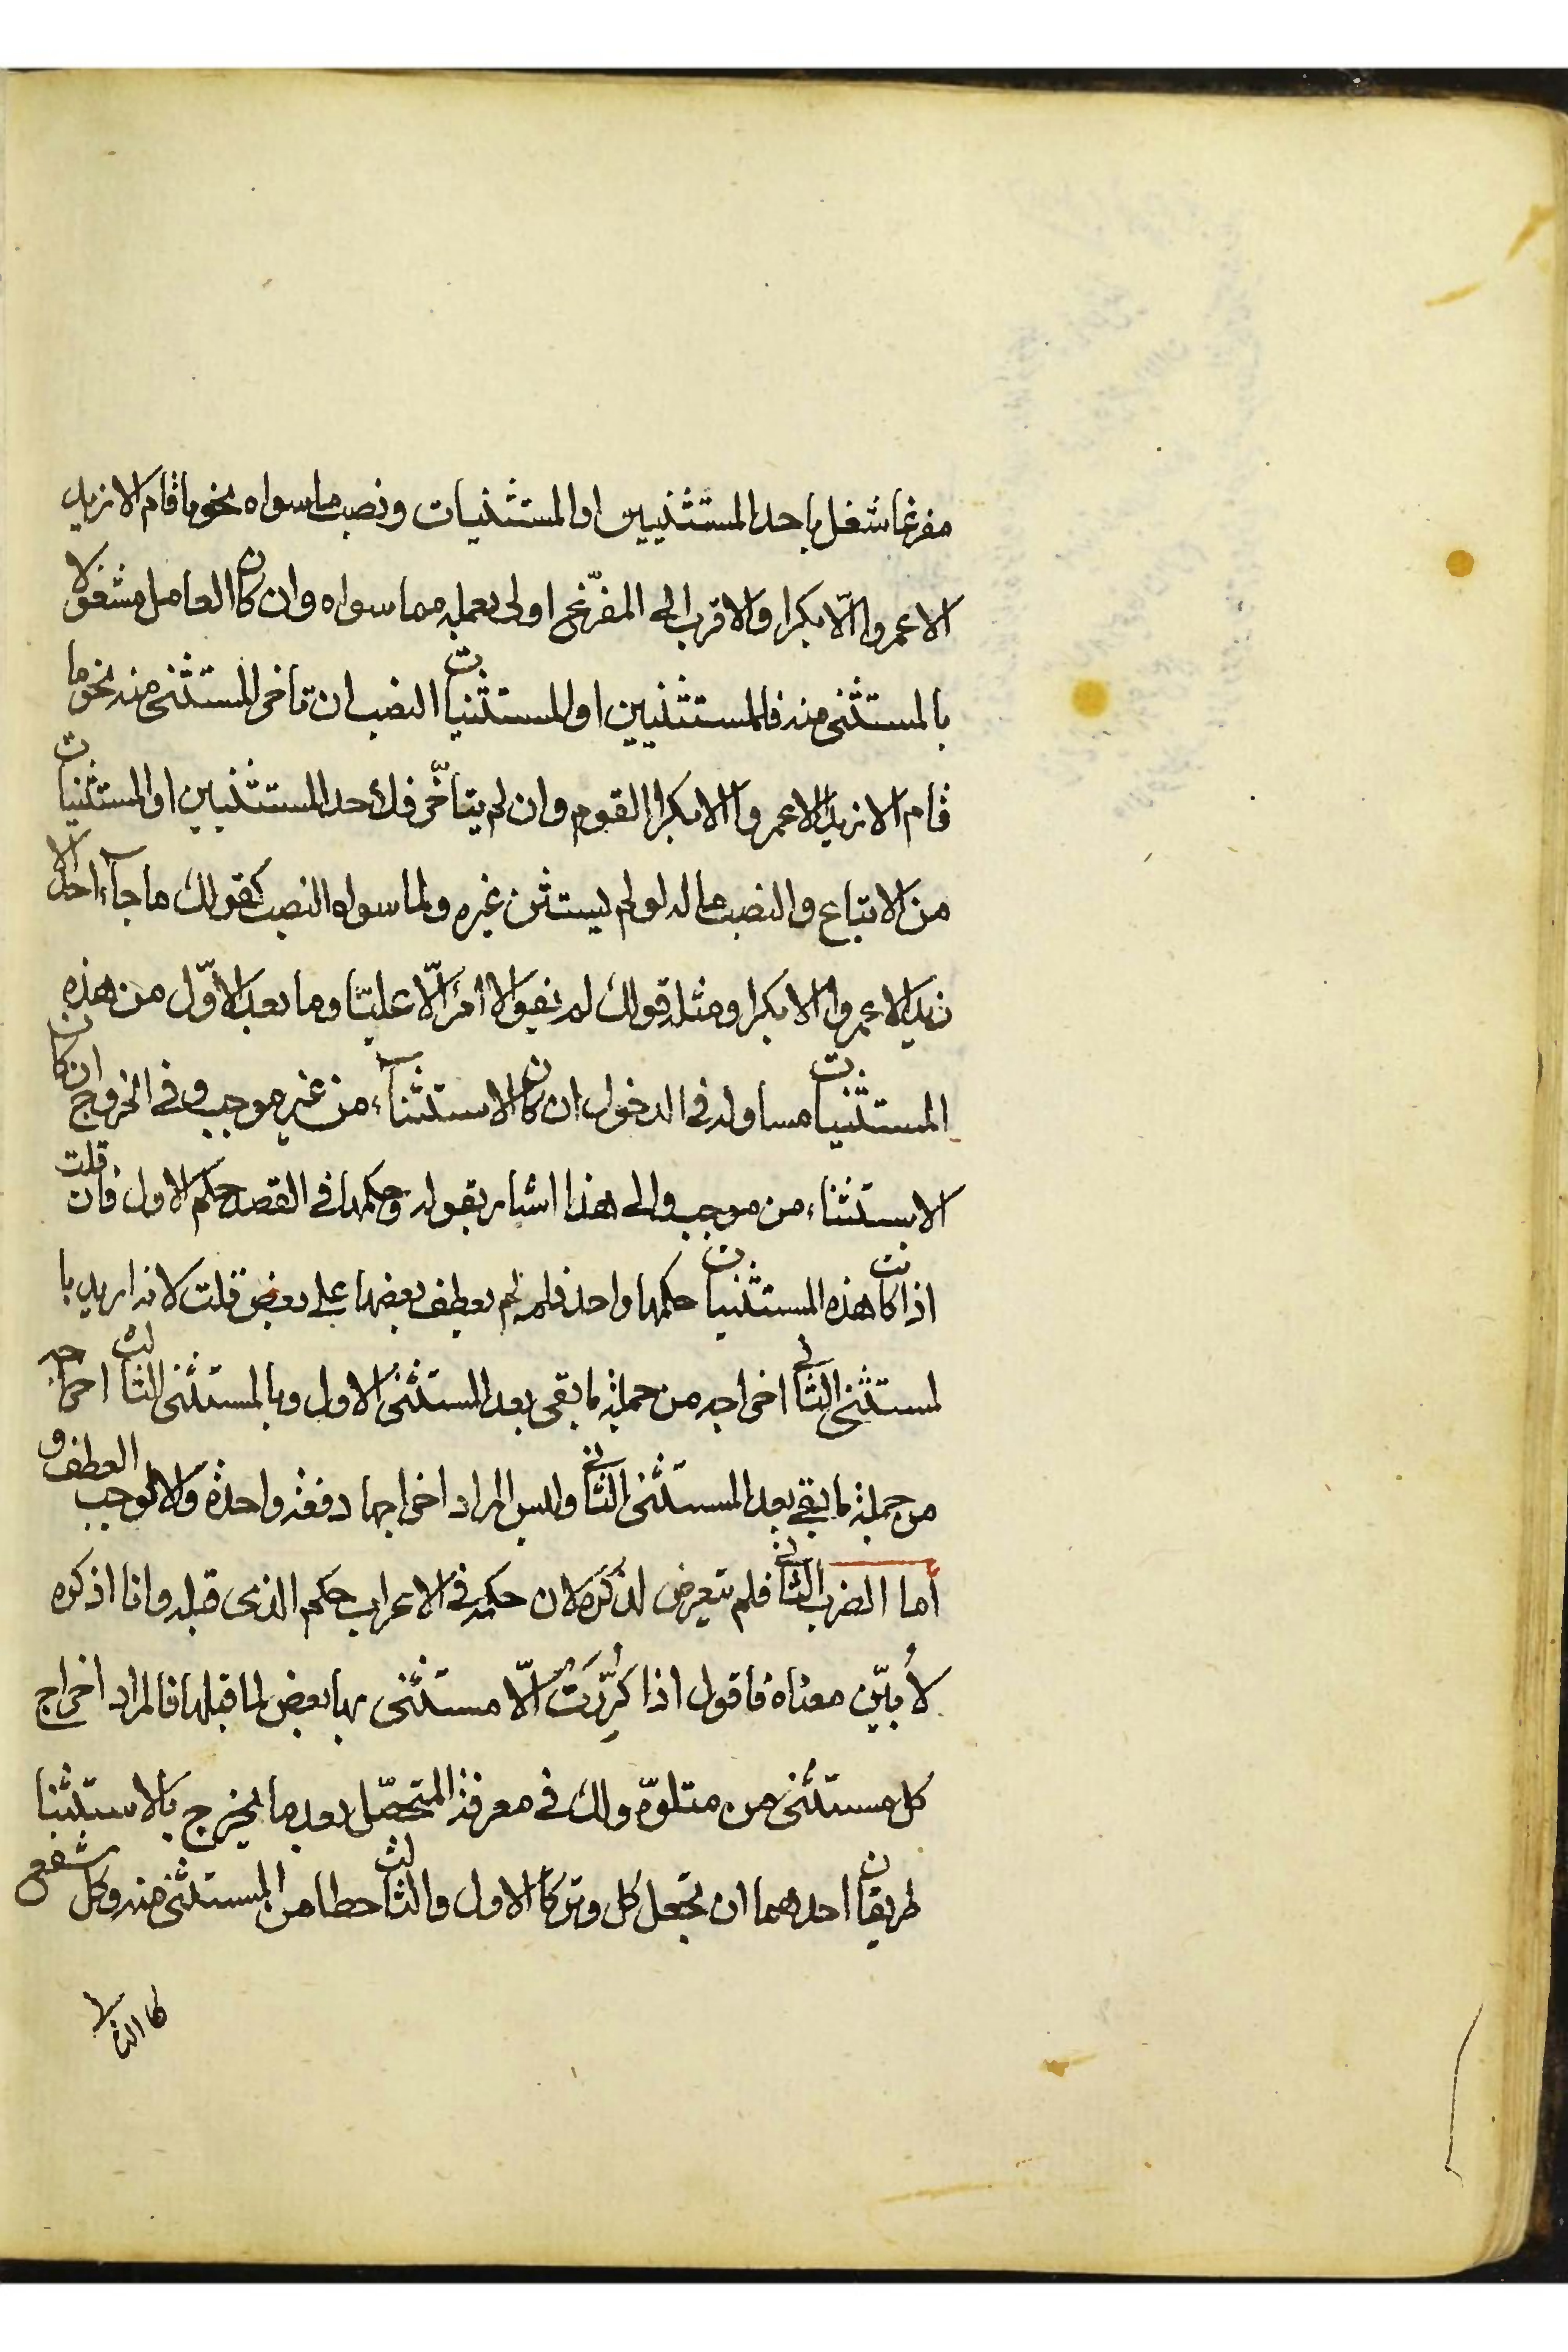 مفرغا شغل باحد المستثنيين او المستثنيات ونصب ما سواه نحو ما قام الا زيد
الا عمروا الّا بكرا والاقرب الى المفرّغ اولى بعمله مما سواه وان كان العامل مشغولا
بالمستثنى منه فللمستثنيين او للمستثنيات النصب ان تاخر المستثنى منه نحو ما
قام الا زيدا الا عمروا الا بكرا القوم وان لم يتاخّر فلاحد المستثنيين او المستثنيات
من الاتباع والنصب ما له لو لم يستثن غيره ولما سواه النصب كقولك ما جآء احد الا
زيد الا عمروا الا بكرا ومثله قولك لم يفوا الا امرؤ الّا عليّا وما بعد الاوّل من هذه
المستثنيات مساو له فى الدخول ان كان الاستثنآء من غير موجب وفى الخروج ان كان
الاستثناء من موجب والى هذا اشار بقوله وحكمها فى القصد حكم الاول فان قلت
اذا كانت هذه المستثنيات حكمها واحد فلم لم يعطف بعضها على بعض قلت لانه اريد با
لمستثنى الثانى اخراجه من جملة ما بقى بعد المستثنى الاول وبالمستثنى الثالث اخراجه
من جملة ما بقى بعد المستثنى الثانى وليس المراد اخراجها دفعة واحدة والا لوجب العطف و
أما الضرب الثانى فلم يتعرض لذكره لان حكمه فى الاعراب حكم الذى قبله وانا اذكره
لأبيّن معناه فاقول اذا كُرِّرَتْ الّا مستثنى بها بعض لما قبلها فالمراد اخراج
كل مستثنى من متلوّه ولك فى معرفة المتحصّل بعد ما يخرج بالاستثنا
طريقان احدهما ان تجعل كل وتر كالاول والثالث حطا من المستثنى منه وكل شفع
كالثا